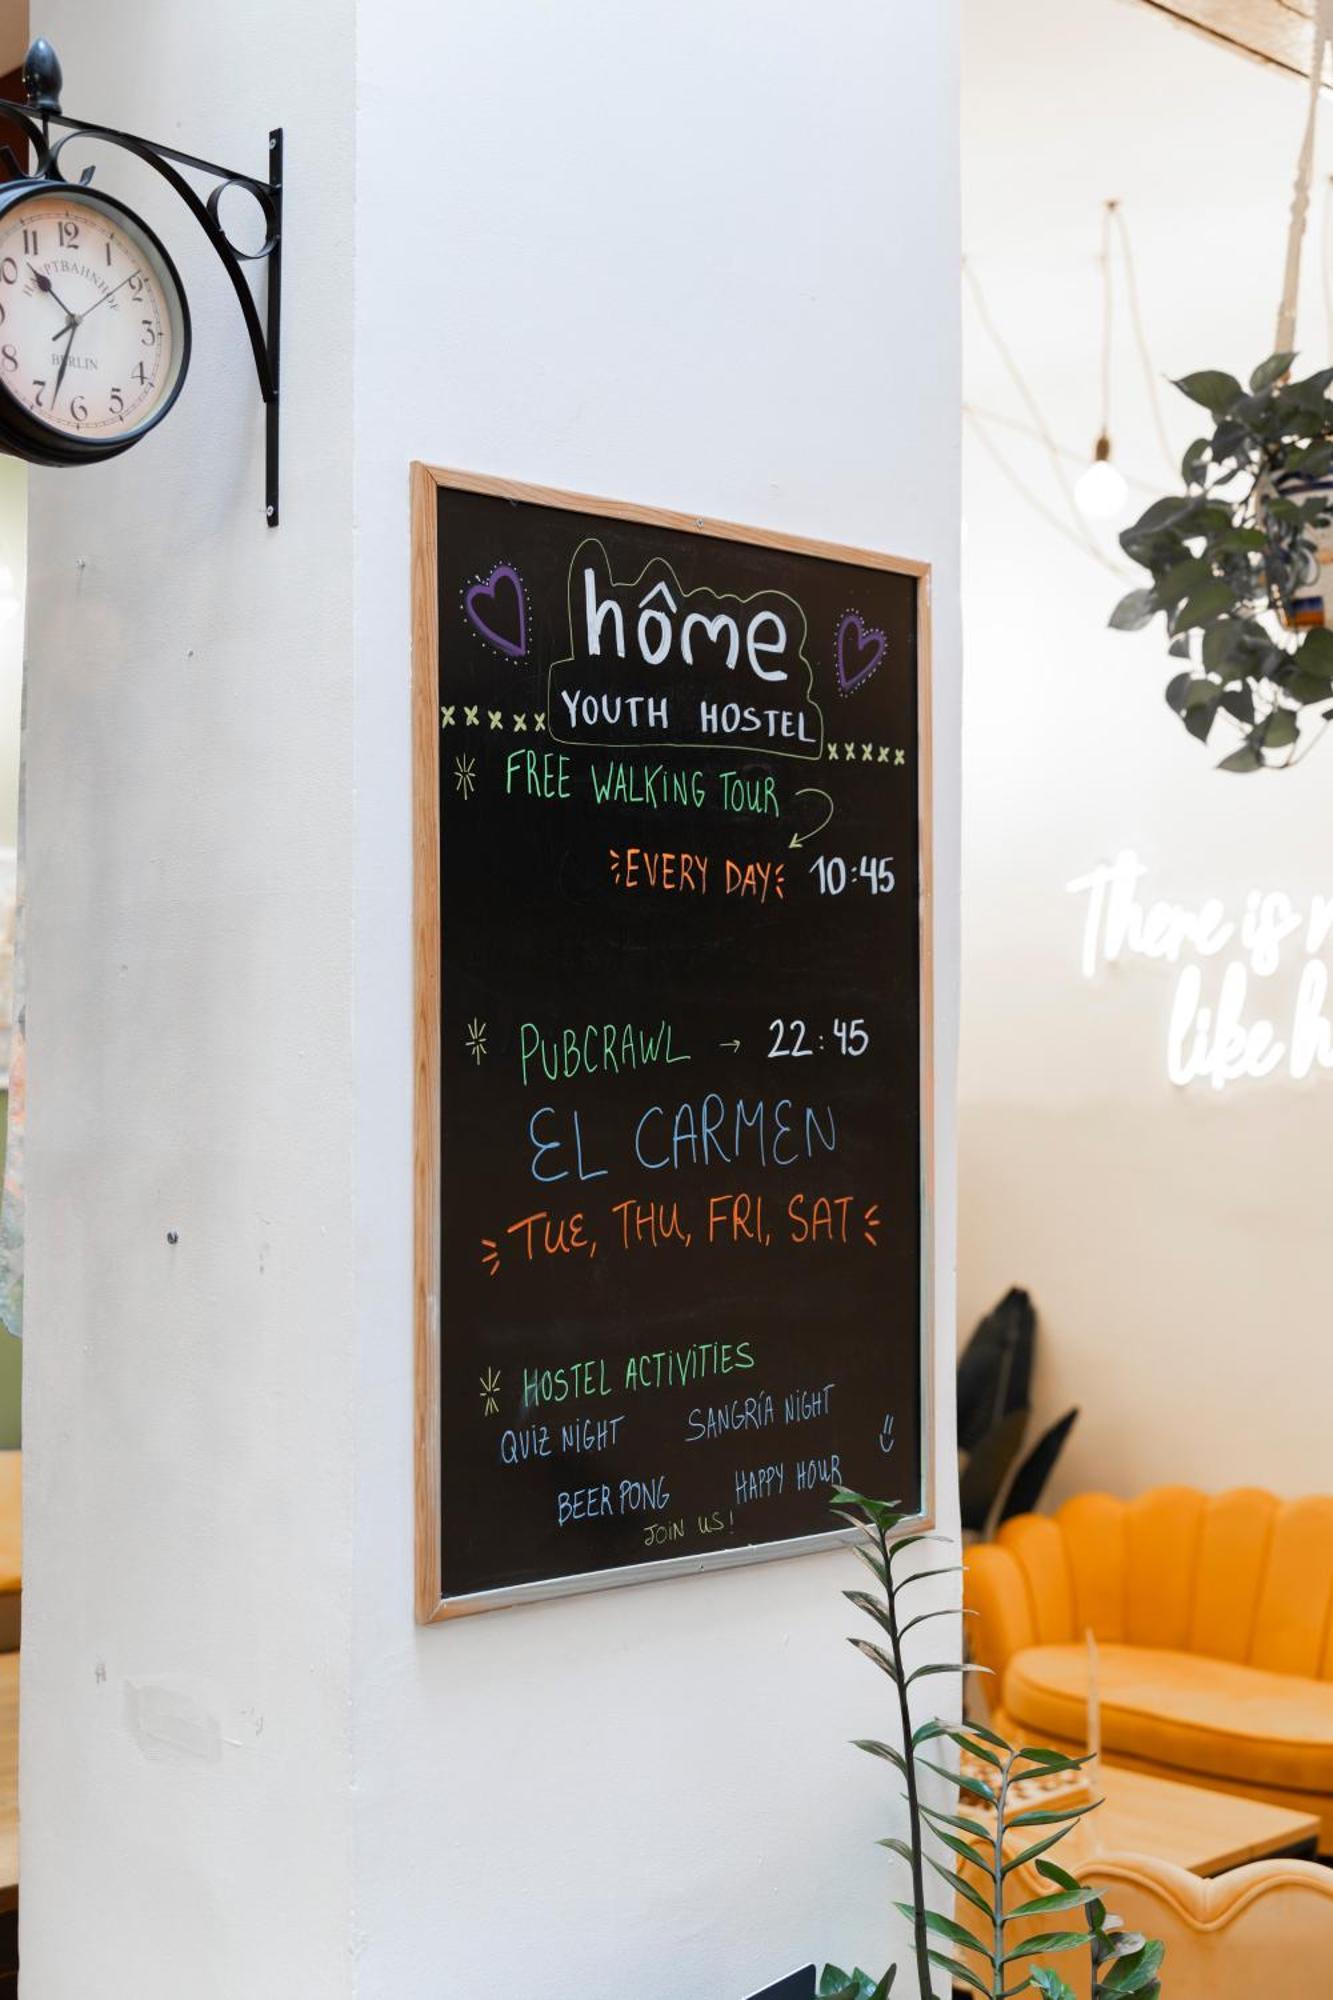 11 12 1
10 2
HAUPTBAHNHOF
3
8 BERLIN 4
7 6 5
hôme
YOUTH HOSTEL
xxxxx xxxxx
FREE WALKING TOUR
EVERY DAY 10:45
PUBCRAWL → 22:45
EL CARMEN
TUE, THU, FRI, SAT
HOSTEL ACTIVITIES
QUIZ NIGHT SANGRÍA NIGHT
BEER PONG HAPPY HOUR
JOIN US!
There is
like